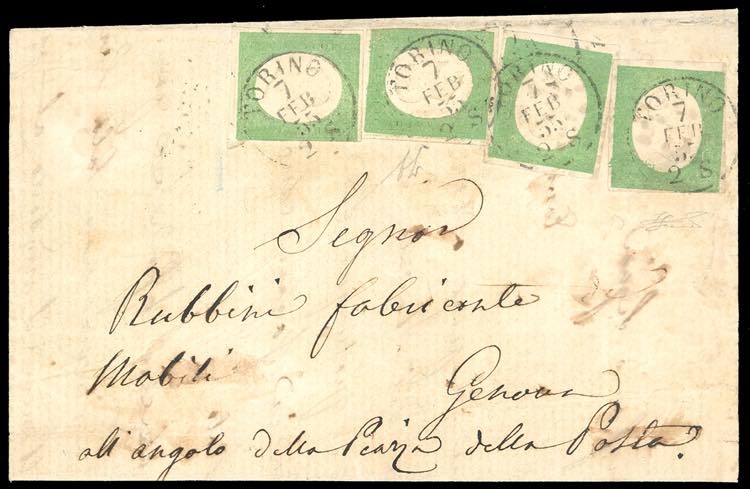 TORINO
7
FEB
55
2 S
TORINO
7
FEB
55
2 S
TORINO
7
FEB
55
2 S
TORINO
7
FEB
55
2 S
Segnor
Rubbini fabricante
Mobili Genova
all'angolo della Piazza della Posta.